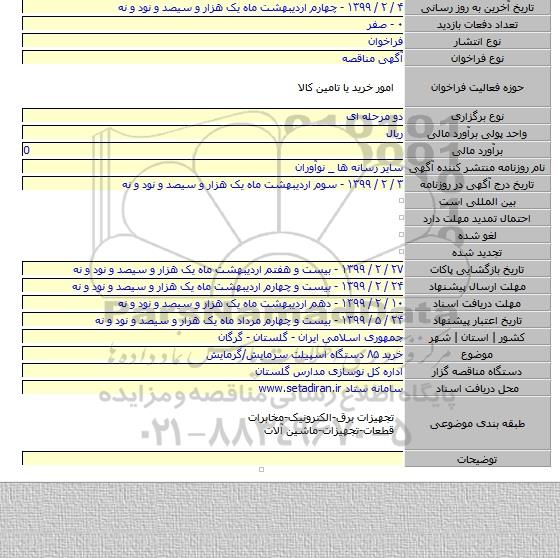 تاریخ آخرین به روز رسانی ۴ / ۲ / ۱۳۹۹ - چهارم اردیبهشت ماه یک هزار و سیصد و نود و نه
تعداد دفعات بازدید ۰ - صفر
نوع انتشار فراخوان
نوع فراخوان آگهی مناقصه
حوزه فعالیت فراخوان امور خرید یا تامین کالا
نوع برگزاری دو مرحله ای
واحد پولی برآورد مالی ریال
برآورد مالی 0
نام روزنامه منتشر کننده آگهی سایر رسانه ها _ نوآوران
تاریخ درج آگهی در روزنامه ۳ / ۲ / ۱۳۹۹ - سوم اردیبهشت ماه یک هزار و سیصد و نود و نه
بین المللی است
احتمال تمدید مهلت دارد
لغو شده
تجدید شده
تاریخ بازگشایی پاکات ۲۷ / ۲ / ۱۳۹۹ - بیست و هفتم اردیبهشت ماه یک هزار و سیصد و نود و نه
مهلت ارسال پیشنهاد ۲۴ / ۲ / ۱۳۹۹ - بیست و چهارم اردیبهشت ماه یک هزار و سیصد و نود و نه
مهلت دریافت اسناد ۱۰ / ۲ / ۱۳۹۹ - دهم اردیبهشت ماه یک هزار و سیصد و نود و نه
تاریخ اعتبار پیشنهاد ۲۴ / ۵ / ۱۳۹۹ - بیست و چهارم مرداد ماه یک هزار و سیصد و نود و نه
کشور | استان | شهر جمهوری اسلامی ایران - گلستان - گرگان
موضوع خرید ۸۵ دستگاه اسپیلت سرمایش/گرمایش
دستگاه مناقصه گزار اداره کل نوسازی مدارس گلستان
محل دریافت اسناد سامانه ستاد www.setadiran.ir
طبقه بندی موضوعی تجهیزات برق-الکترونیک-مخابرات
قطعات-تجهیزات-ماشین آلات
توضیحات
ParsNamadData
پایگاه اطلاع رسانی مناقصه و مزایده